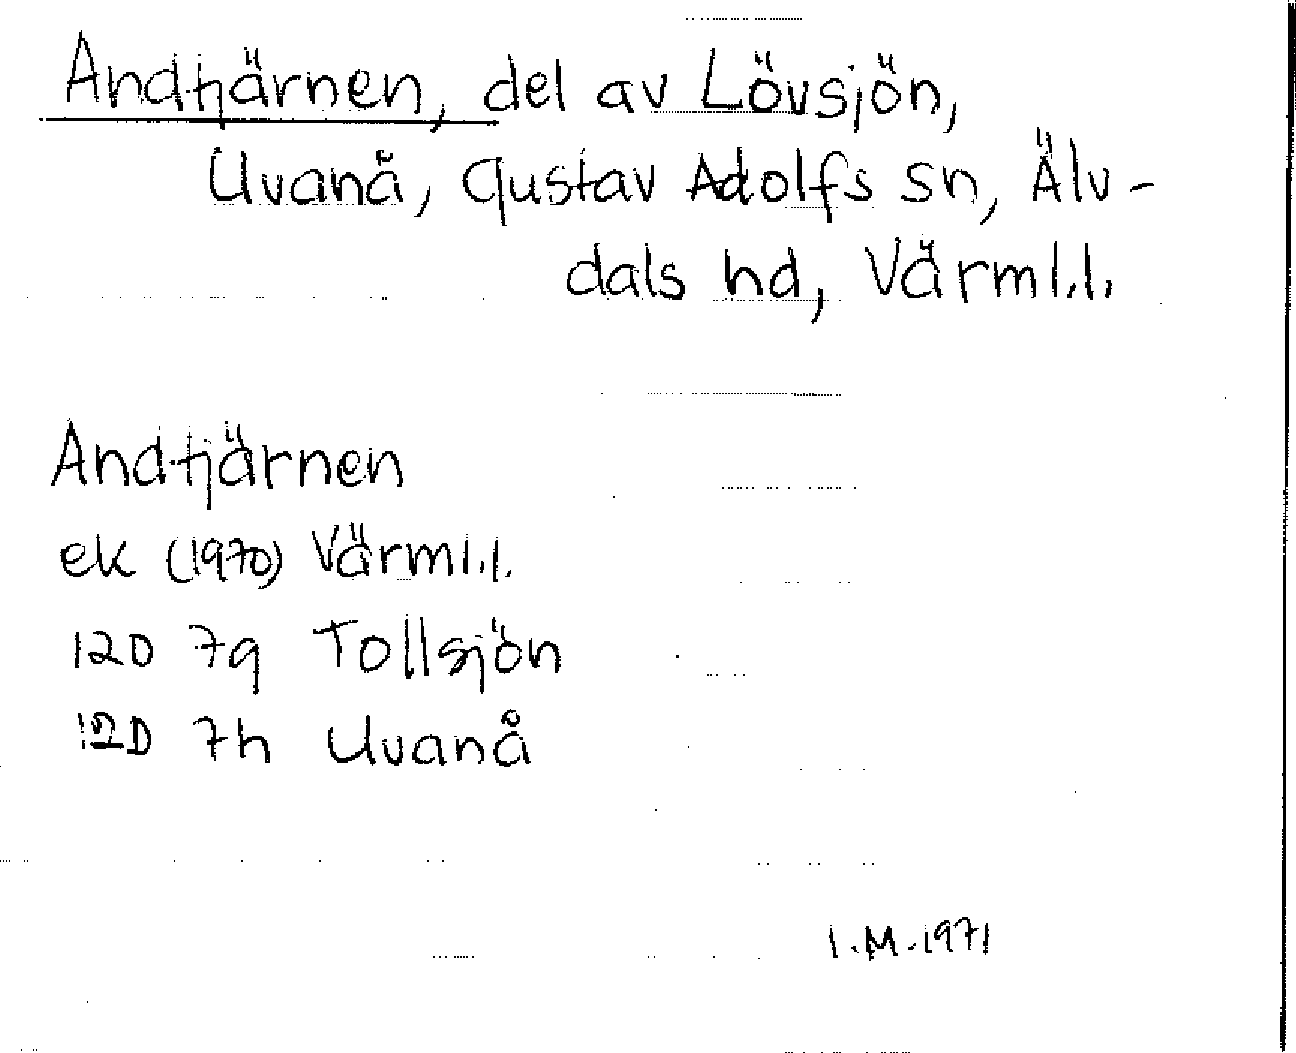 Andtjärnen, del av Lövsjön,
Uvanå, Gustav Adolfs sn, Älv-
dals hd, Värml.l.
Andtjärnen
ek (1970) Värml.l.
12D 7g Tollsjön
12D 7h Uvanå
I.M.1971